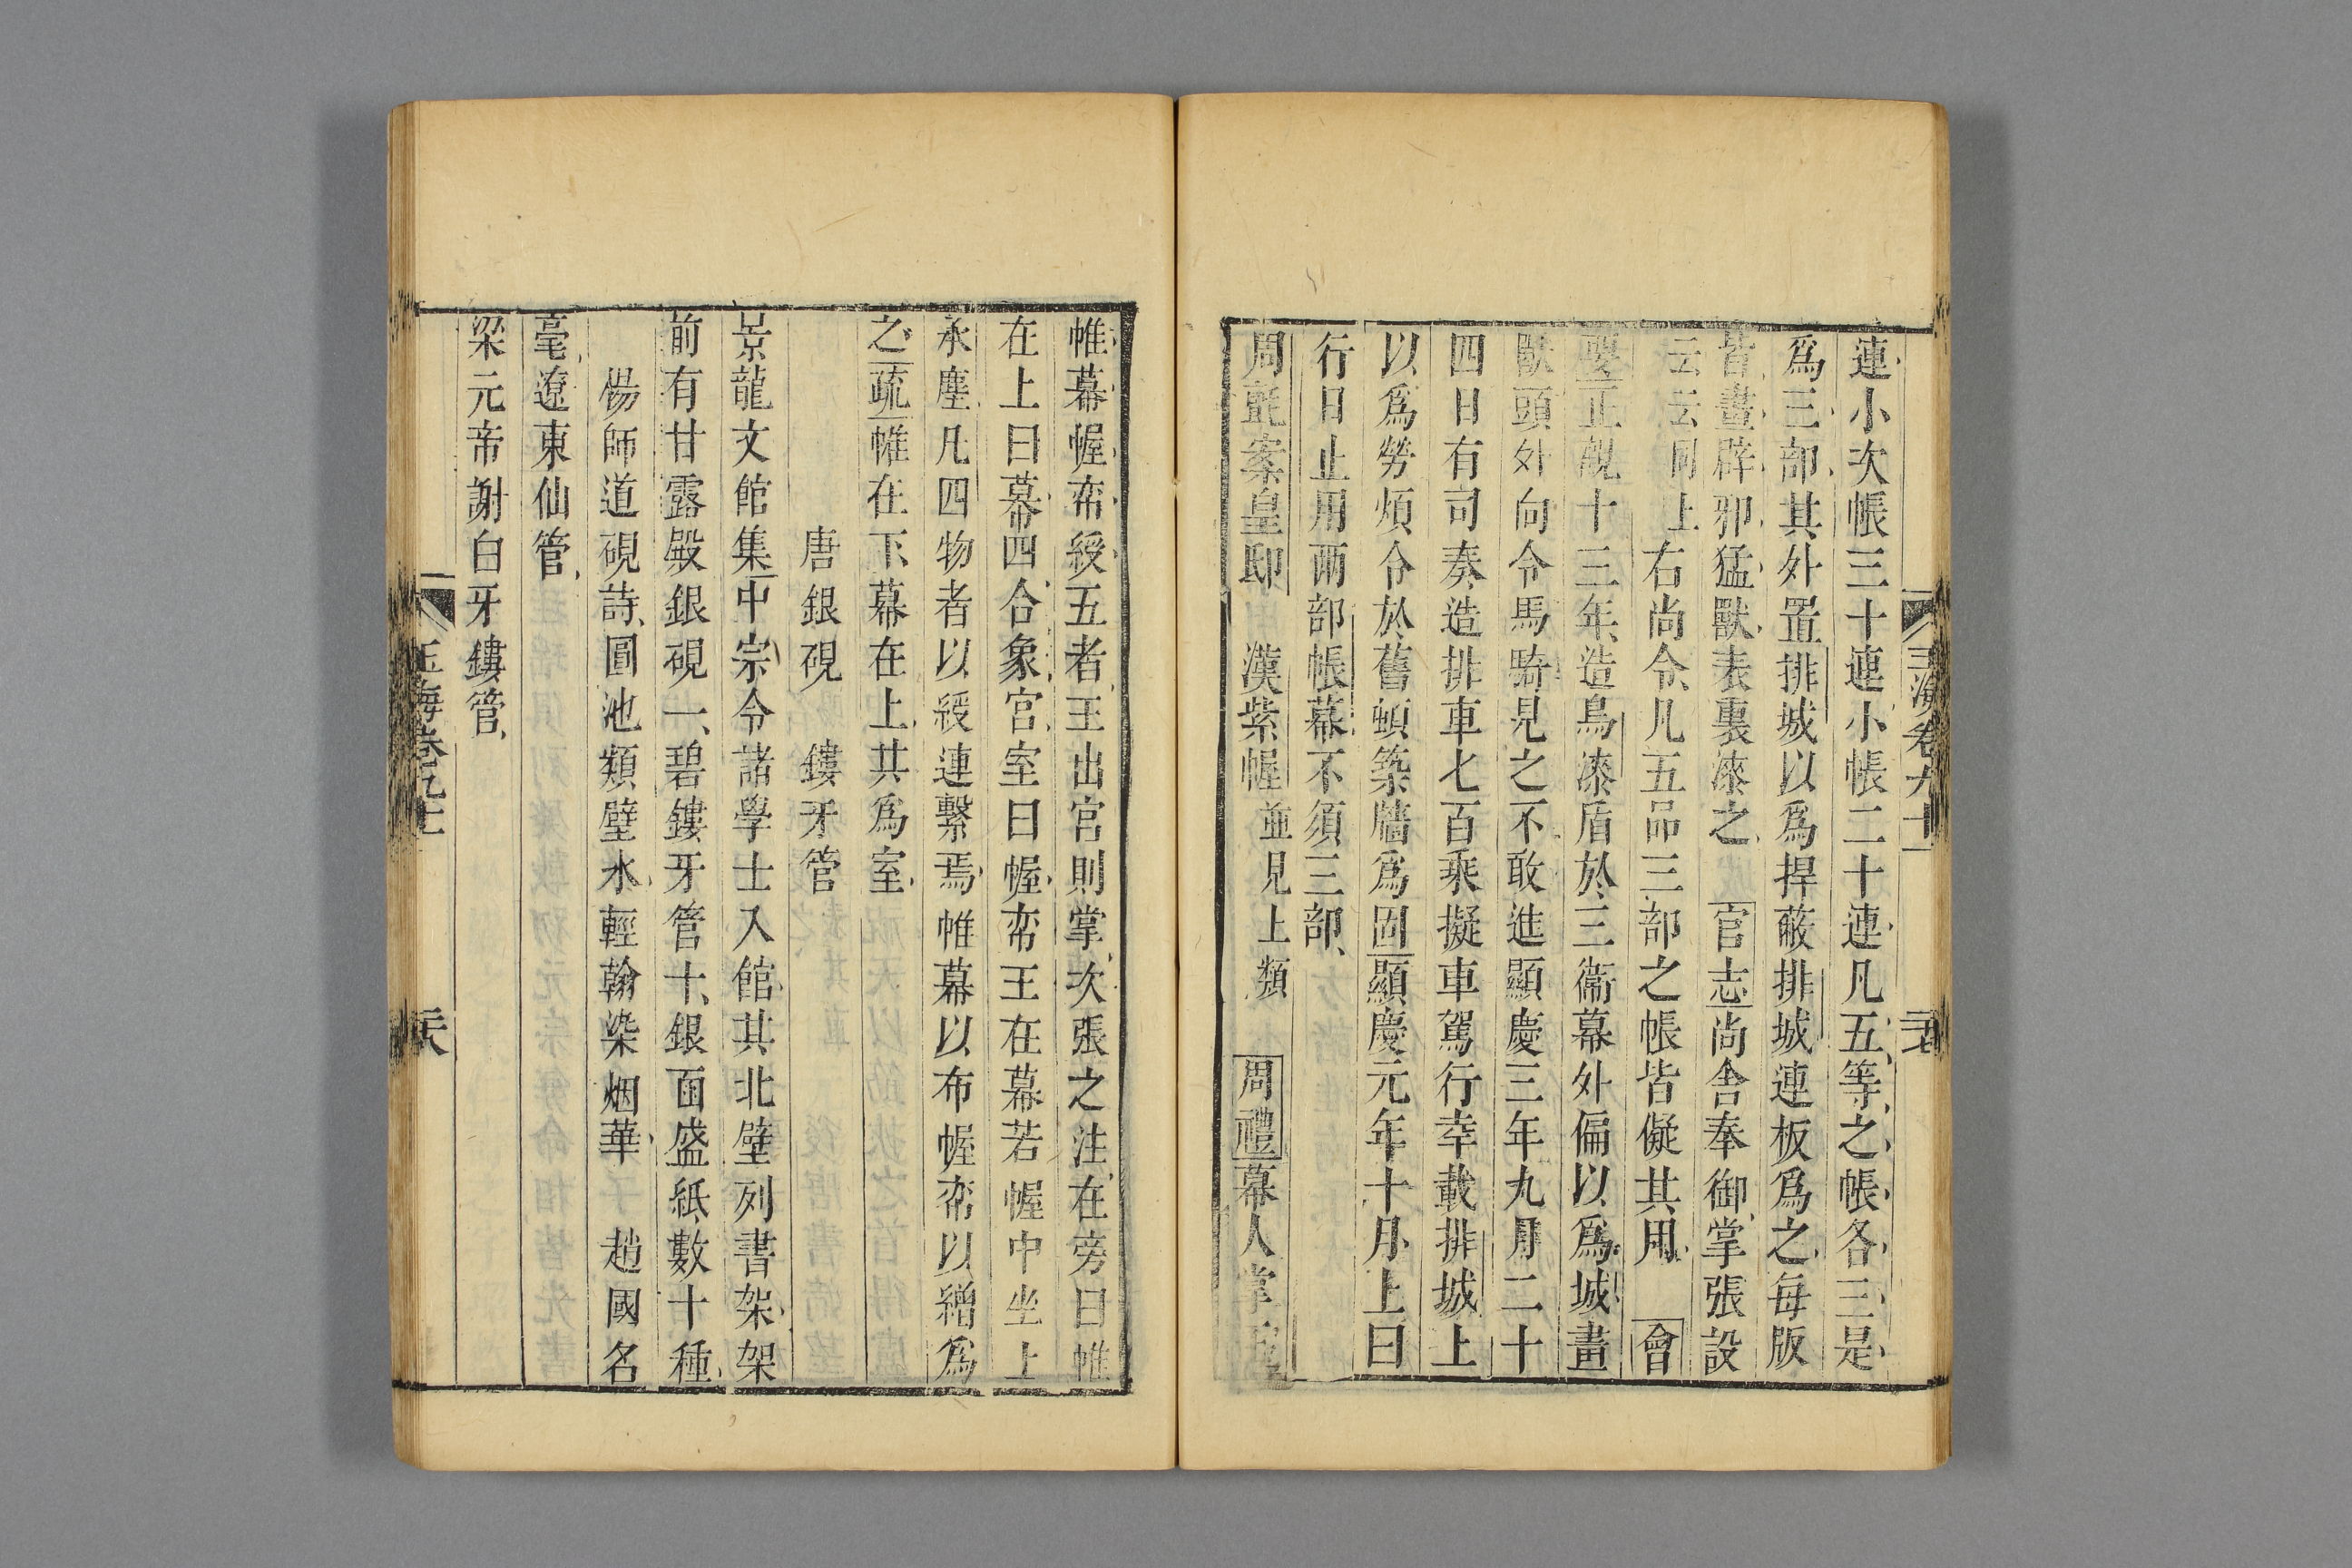 連小次帳三十連小帳二十連凡五等之帳各三是
爲三部其外置排城以爲捍蔽排城連板爲之每版
皆畫辟邪猛獸表裏漆之 官志尚舍奉御掌張設
云云同上 右尚令凡五品三部之帳皆儗其用 會
要正觀十三年造鳥漆盾於三衞幕外偏以爲城畫
獸頭外向令馬騎見之不敢進顯慶三年九月二十
四日有司奏造排車七百乘擬車駕行幸載排城上
以爲勞煩令於舊頓築牆爲固顯慶元年十月上曰
行日止用兩部帳幕不須三部
周氈案皇邸 漢紫幄 並見上類 周禮幕人掌
玉海卷九十一
帷幕幄帟綬五者王出宮則掌次張之注在旁曰帷
在上曰幕四合象宮室曰幄帟王在幕若幄中坐上
承塵凡四物者以綬連繫焉帷幕以布幄帟以繒爲
之疏帷在下幕在上其爲室
唐銀硯 鏤牙管
景龍文館集中宗令諸學士入館其北壁列書架架
前有甘露殿銀硯一碧鏤牙管十銀函盛紙數十種
楊師道硯詩圓池類壁水輕翰染烟華 趙國名
毫遼東仙管
梁元帝謝白牙鏤管
玉海卷九十一 二六